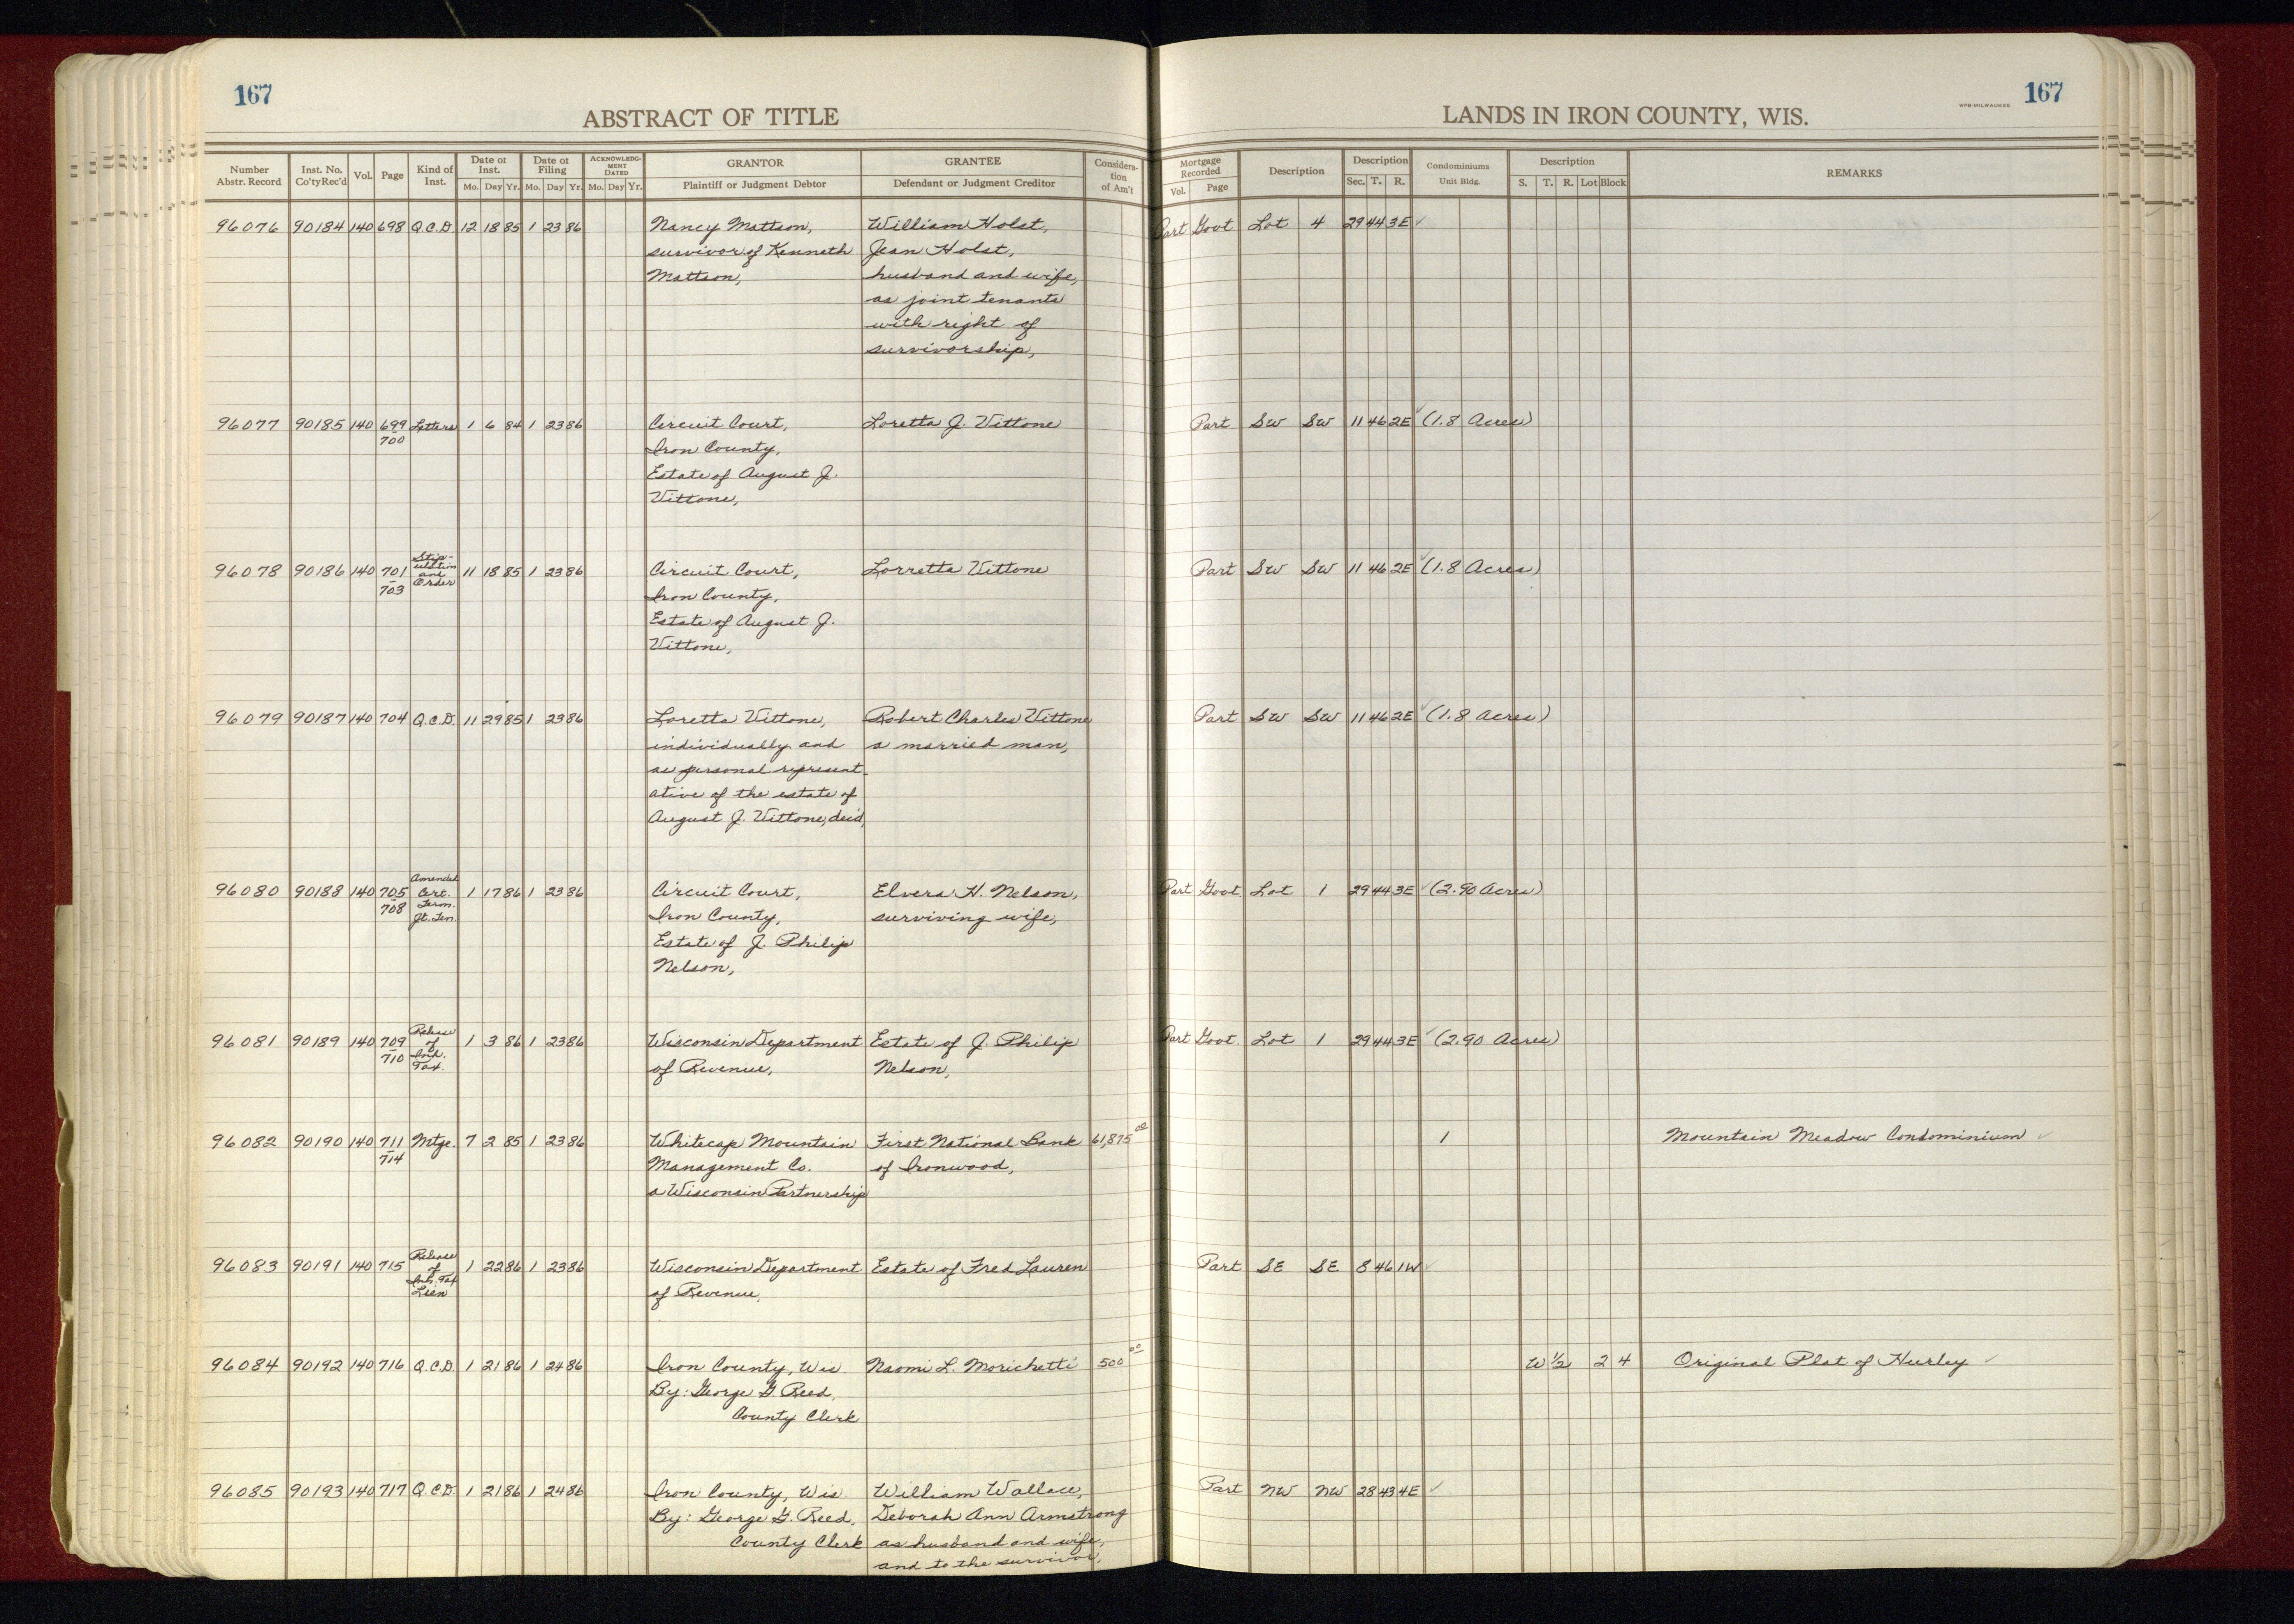 167
ABSTRACT OF TITLE
Number Abstr. Record | Inst. No. Co'ty Rec'd | Vol. | Page | Kind of Inst. | Date of Inst. Mo. Day Yr. | Date of Filing Mo. Day Yr. | ACKNOWLEDGMENT DATED Mo. Day Yr. | GRANTOR Plaintiff or Judgment Debtor | GRANTEE Defendant or Judgment Creditor | Consideration of Am't
96076 90184 140 698 Q.C.D. 12 18 85 1 23 86 Nancy Mattson, William Holst,
survivor of Kenneth Jean Holst,
Mattson, husband and wife,
as joint tenants
with right of
survivorship,
96077 90185 140 699-700 Letters 1 6 84 1 23 86 Circuit Court, Loretta J. Vittone
Iron County,
Estate of August J.
Vittone,
96078 90186 140 701-703 Stipulation and Order 11 18 85 1 23 86 Circuit Court, Lorretta Vittone
Iron County,
Estate of August J.
Vittone,
96079 90187 140 704 Q.C.D. 11 29 85 1 23 86 Loretta Vittone, Robert Charles Vittone
individually and a married man,
as personal represent-
ative of the estate of
August J. Vittone, dec'd,
96080 90188 140 705-708 Amended Cert. Term. Jt. Ten. 1 17 86 1 23 86 Circuit Court, Elvera H. Nelson,
Iron County, surviving wife,
Estate of J. Philip
Nelson,
96081 90189 140 709-710 Release of Inh. Tax. 1 3 86 1 23 86 Wisconsin Department Estate of J. Philip
of Revenue, Nelson,
96082 90190 140 711-714 Mtge. 7 2 85 1 23 86 Whitecap Mountain First National Bank 61,875 00
Management Co. of Ironwood,
a Wisconsin Partnership
96083 90191 140 715 Release of Inh. Tax Lien 1 22 86 1 23 86 Wisconsin Department Estate of Fred Lauren
of Revenue,
96084 90192 140 716 Q.C.D. 1 21 86 1 24 86 Iron County, Wis. Naomi L. Morichetti 500 00
By: George G. Reed,
County Clerk
96085 90193 140 717 Q.C.D. 1 21 86 1 24 86 Iron County, Wis William Wallace,
By: George G. Reed, Deborah Ann Armstrong
County Clerk as husband and wife,
and to the survivor,
WPB-MILWAUKEE 167
LANDS IN IRON COUNTY, WIS.
Mortgage Recorded Vol. Page | Description | Description Sec. T. R. | Condominiums Unit Bldg. | Description S. T. R. Lot Block | REMARKS
Part Govt. Lot 4 29 44 3E ✓
Part SW SW 11 46 2E ✓ (1.8 Acres)
Part SW SW 11 46 2E ✓ (1.8 Acres)
Part SW SW 11 46 2E ✓ (1.8 Acres)
Part Govt. Lot 1 29 44 3E ✓ (2.90 Acres)
Part Govt. Lot 1 29 44 3E ✓ (2.90 Acres)
1 Mountain Meadow Condominium ✓
Part SE SE 8 46 1W ✓
W 1/2 2 4 Original Plat of Hurley ✓
Part NW NW 28 43 4E ✓